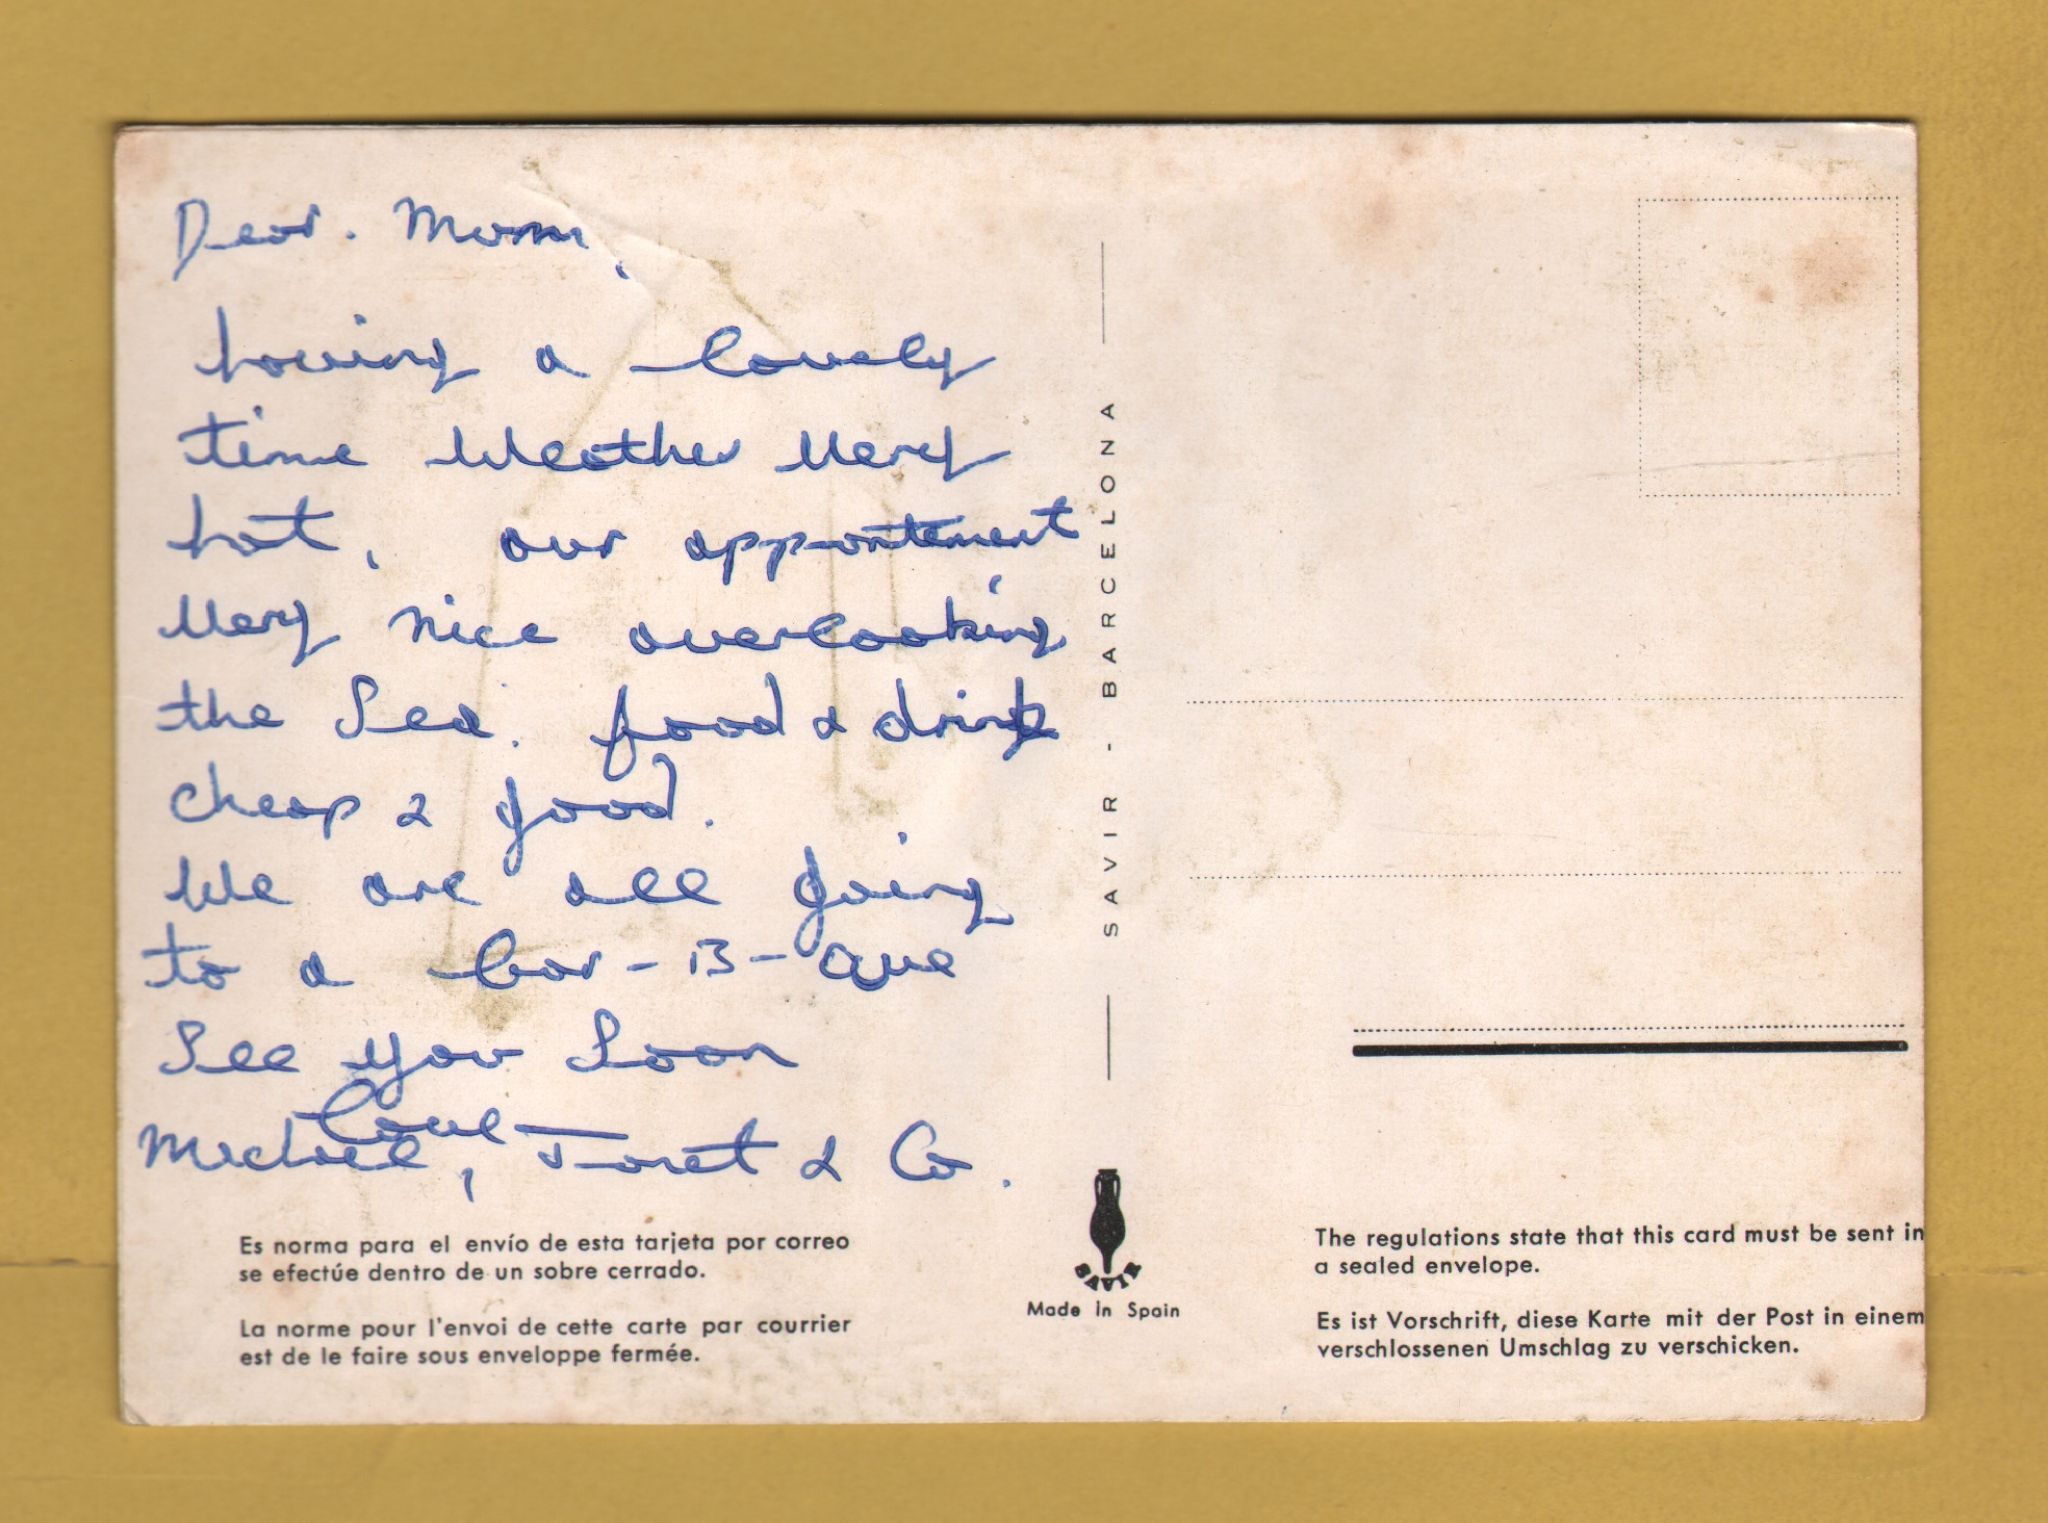 Dear. Mum,
having a lovely
time Weather Very
hot, our appointement
Very nice overlooking
the Sea. food & drink
cheap & good.
We are all going
to a bar-B-Que
See you Soon
love
Michael, Janet & Co.
SAVIR - BARCELONA
Es norma para el envío de esta tarjeta por correo
se efectúe dentro de un sobre cerrado.
La norme pour l'envoi de cette carte par courrier
est de le faire sous enveloppe fermée.
SAVIR
Made in Spain
The regulations state that this card must be sent in
a sealed envelope.
Es ist Vorschrift, diese Karte mit der Post in einem
verschlossenen Umschlag zu verschicken.